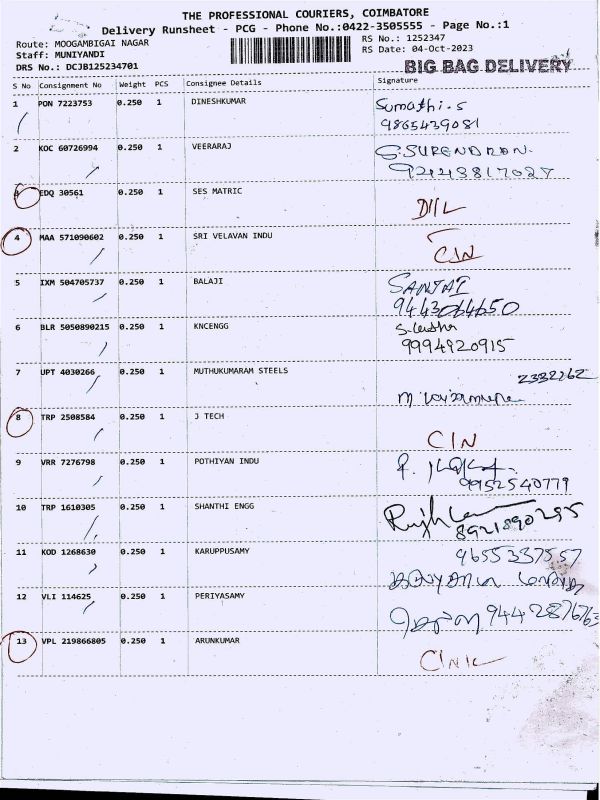 THE PROFESSIONAL COURIERS, COIMBATORE
Delivery Runsheet - PCG - Phone No.:0422-3505555 - Page No.:1
Route: MOOGAMBIGAI NAGAR
Staff: MUNIYANDI
DRS No.: DCJB125234701
RS No.: 1252347
RS Date: 04-Oct-2023
BIG BAG DELIVERY
S No Consignment No Weight PCS Consignee Details Signature
1 PON 7223753 0.250 1 DINESHKUMAR Sumathi.S
9865439081
2 KOC 60726994 0.250 1 VEERARAJ G.SURENDRAN.
3 EDQ 30561 0.250 1 SES MATRIC
4 MAA 571090602 0.250 1 SRI VELAVAN INDU
CIN
5 IXM 504705737 0.250 1 BALAJI SANJAI
9443064650
6 BLR 5050890215 0.250 1 KNCENGG
9994920915
7 UPT 4030266 0.250 1 MUTHUKUMARAM STEELS
2332262
8 TRP 2508584 0.250 1 J TECH
CIN
9 VRR 7276798 0.250 1 POTHIYAN INDU
9952540779
10 TRP 1610305 0.250 1 SHANTHI ENGG
8921890295
11 KOD 1268630 0.250 1 KARUPPUSAMY 9655337557
12 VLI 114625 0.250 1 PERIYASAMY
13 VPL 219866805 0.250 1 ARUNKUMAR